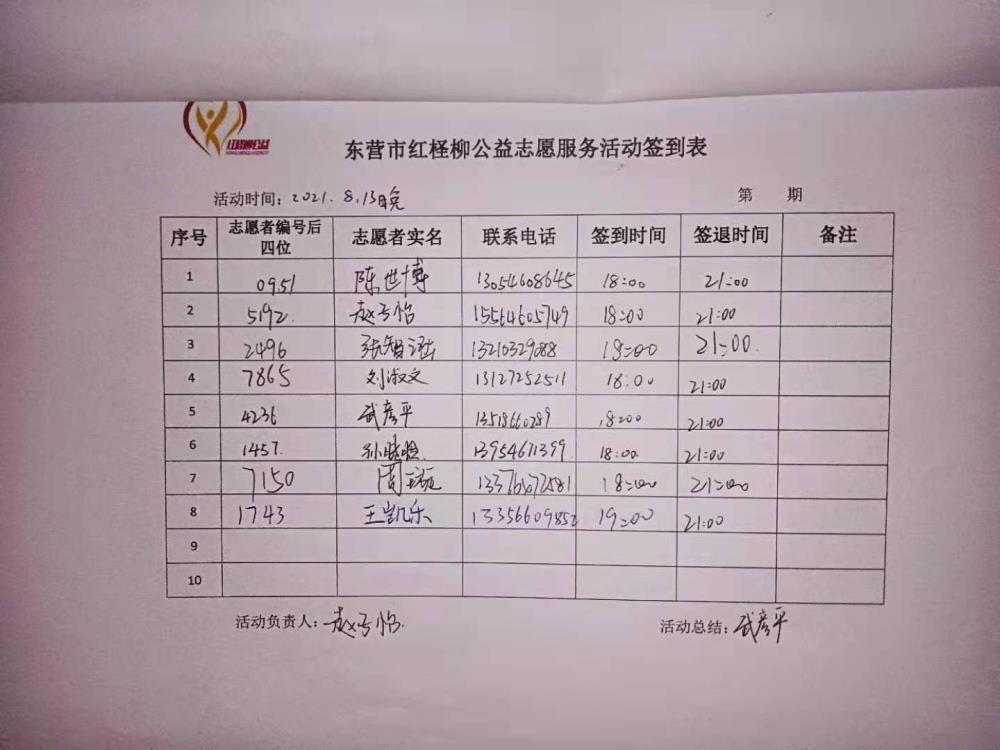 红柽柳公益
东营市红柽柳公益志愿服务活动签到表
活动时间：2021.8.13晚 第 期
序号 志愿者编号后四位 志愿者实名 联系电话 签到时间 签退时间 备注
1 0951 陈世博 13054608645 18:00 21:00
2 5192. 赵子怡 15564605749 18:00 21:00
3 2496 张智涵 13210329088 18:00 21:00.
4 7865 刘淑文 13127252511 18:00 21:00
5 4236 武彦平 13518660289 18:00 21:00
6 1457. 孙 13954671399 18:00 21:00
7 7150 周 18:00 21:00
8 1743 王凯乐 13356609852 19:00 21:00
9
10
活动负责人：赵子怡. 活动总结：武彦平